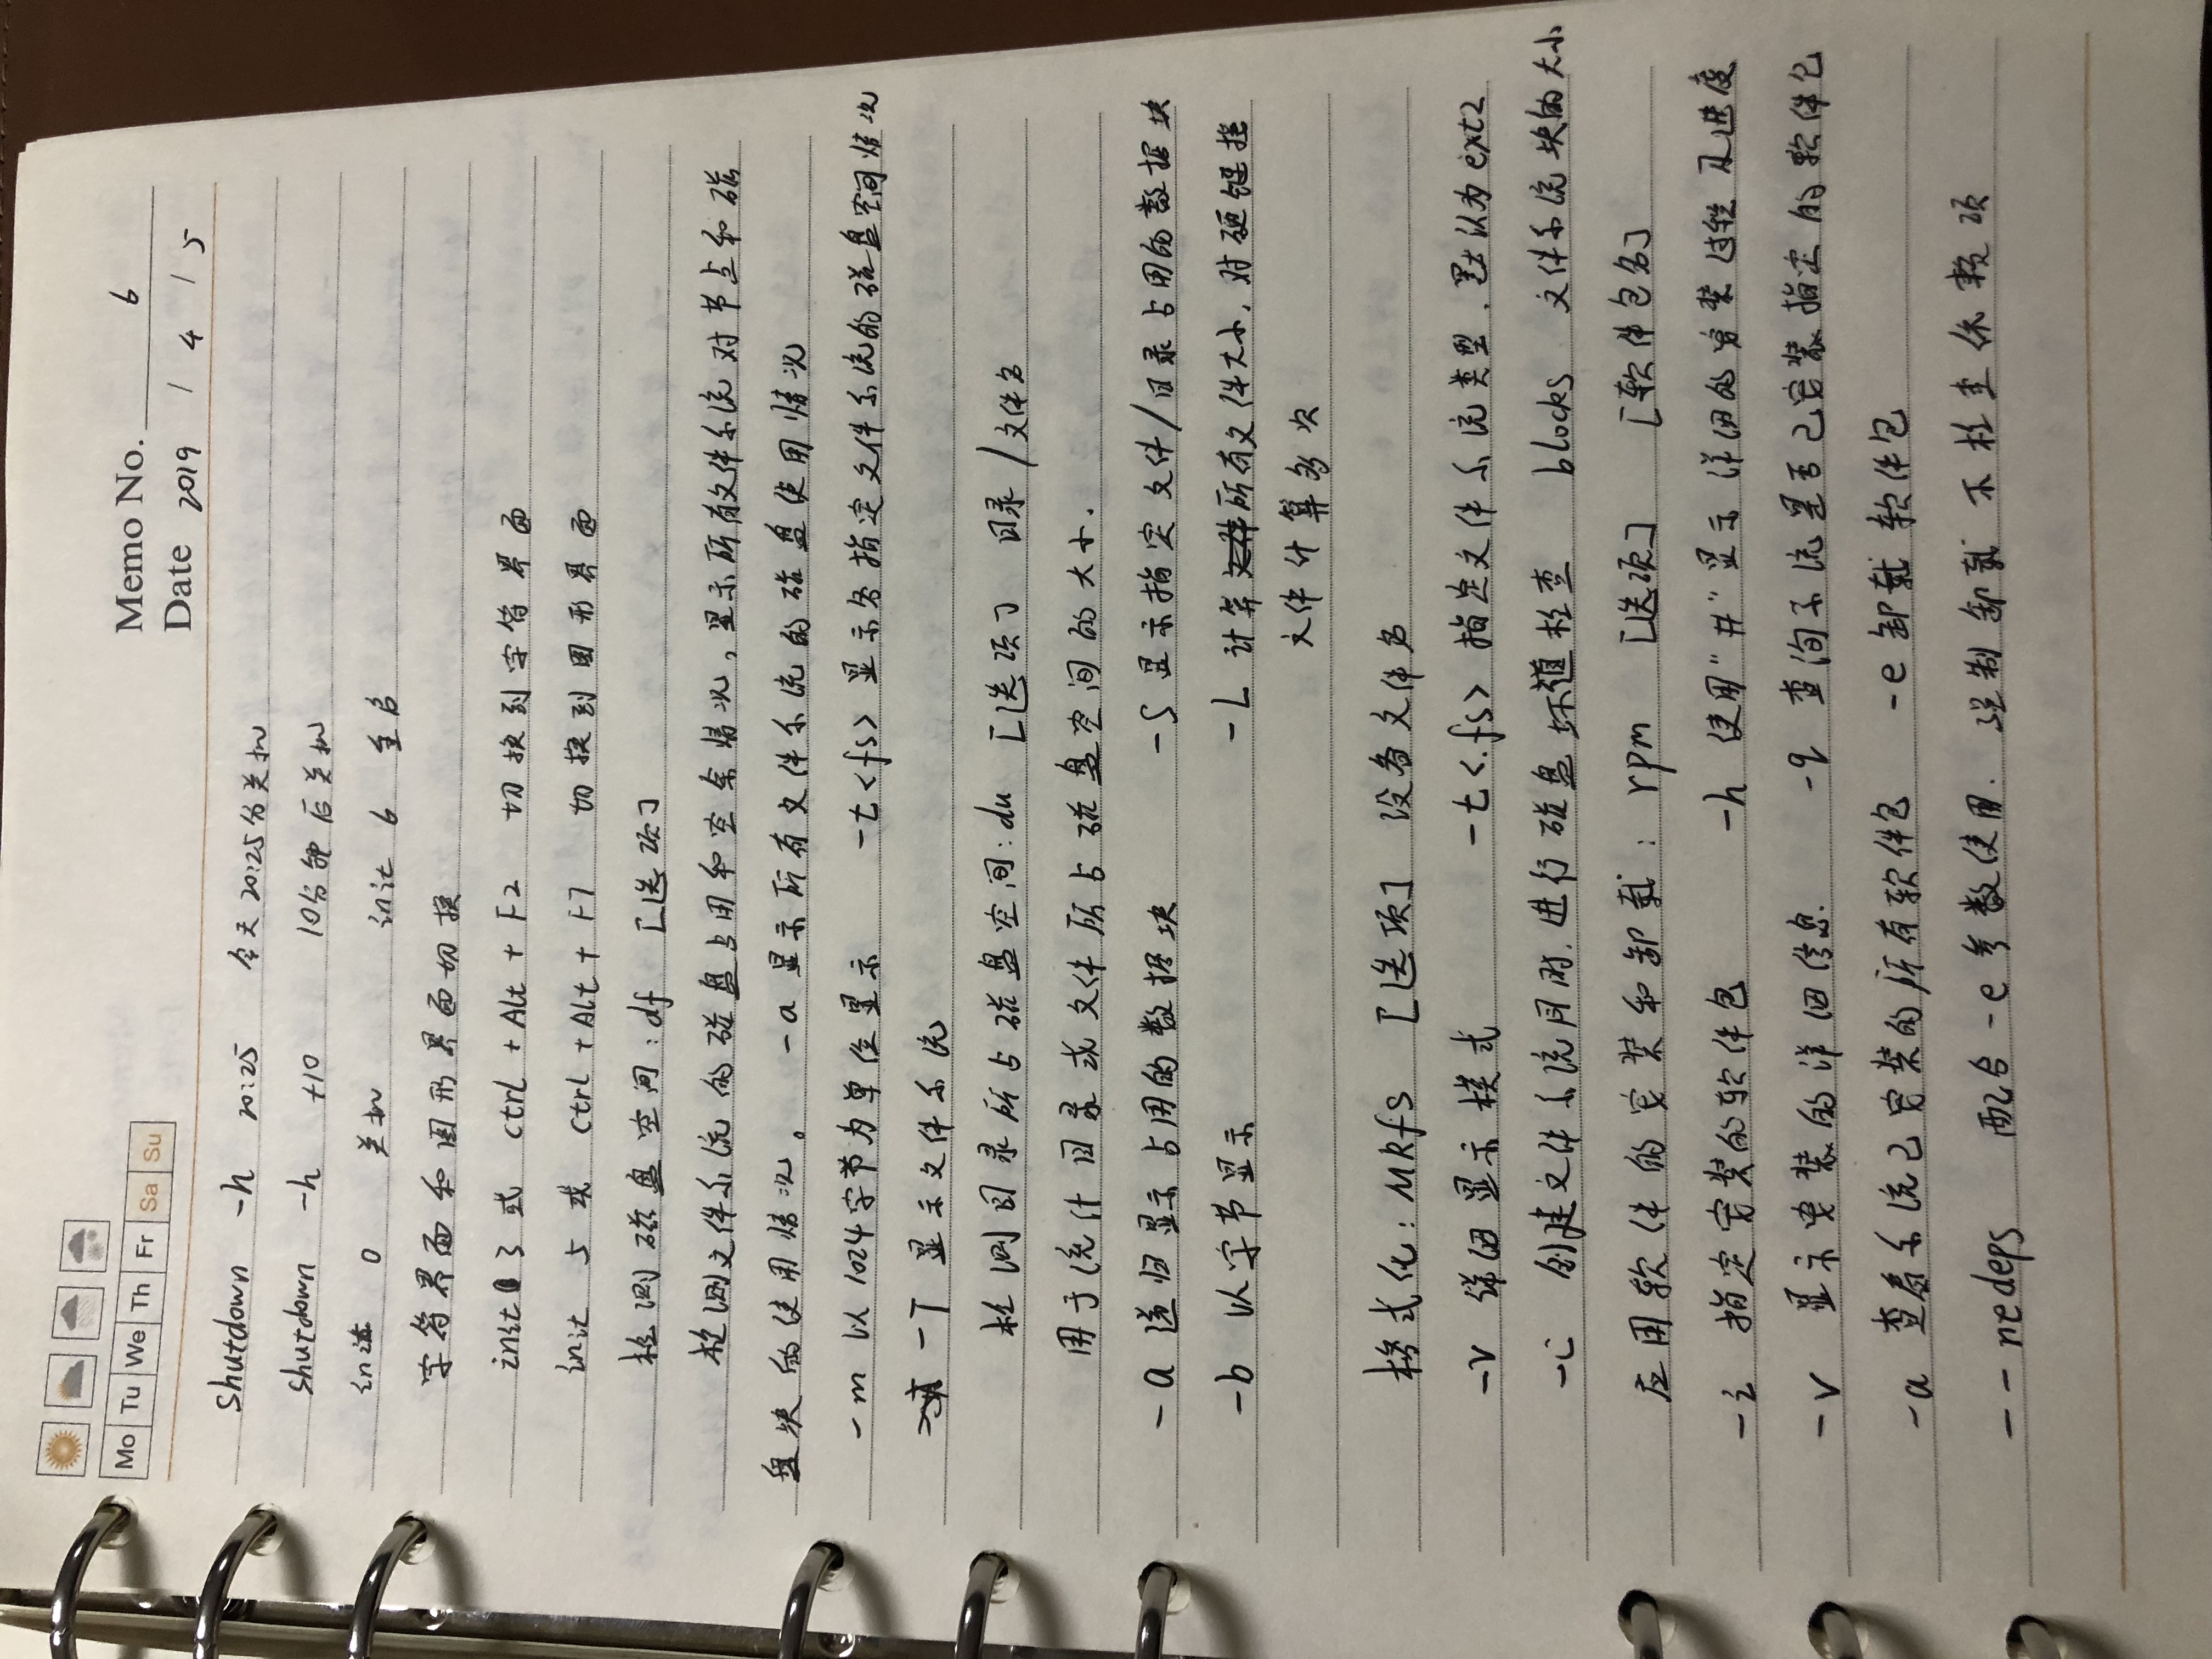 Memo No. 6
Mo Tu We Th Fr Sa Su
Date 2019 / 4 / 5
shutdown -h 20:25 今天20:25分关机
shutdown -h +10 10分钟后关机
init 0 关机 init 6 重启
字符界面和图形界面切换
init 3 或 ctrl + Alt + F2 切换到字符界面
init 5 或 ctrl + Alt + F7 切换到图形界面
检测磁盘空间:df [选项]
检测文件系统的磁盘占用和空余情况,显示所有文件系统对节点和磁
盘块的使用情况。 -a 显示所有文件系统的磁盘使用情况
-m 以1024字节为单位显示 -t<fs> 显示各指定文件系统的磁盘空间情况
-T 显示文件系统
检测目录所占磁盘空间:du [选项] 目录/文件名
用于统计目录或文件所占磁盘空间的大小.
-a 递归显示占用的数据块 -S 显示指定文件/目录占用的数据块
-b 以字节显示 -L 计算所有文件大小,对硬链接
文件计算多次
格式化:MKfs [选项] 设备文件名
-v 详细显示模式 -t<fs> 指定文件系统类型.默认为ext2
-c 创建文件系统用时.进行磁盘坏道检查 blocks 文件系统块的大小
应用软件的安装和卸载:rpm [选项] [软件包名]
-i 指定安装的软件包 -h 使用"#"显示详细的安装过程及进度
-v 显示安装的详细信息. -q 查询系统是否已安装指定的软件包
-a 查看系统已安装的所有软件包 -e 卸载软件包
--nedeps 配合-e参数使用.强制卸载 不检查依赖项